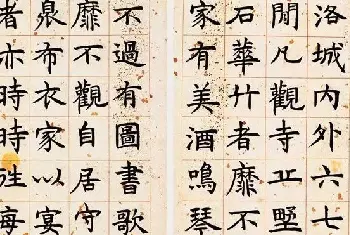 洛城內外六七
閒凡觀寺丘墅
石華竹者靡不
家有美酒鳴琴
不過有圖書歌
靡不觀自居守
臮布衣家以宴
者亦時時往每